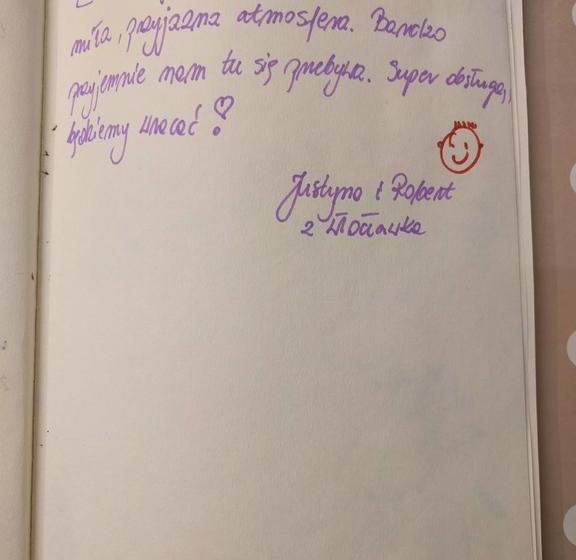 miła, przyjazna atmosfera. Bardzo
przyjemnie nam tu się przebywa. Super obsługa,
będziemy wracać!
Justyna i Robert
z Włocławka